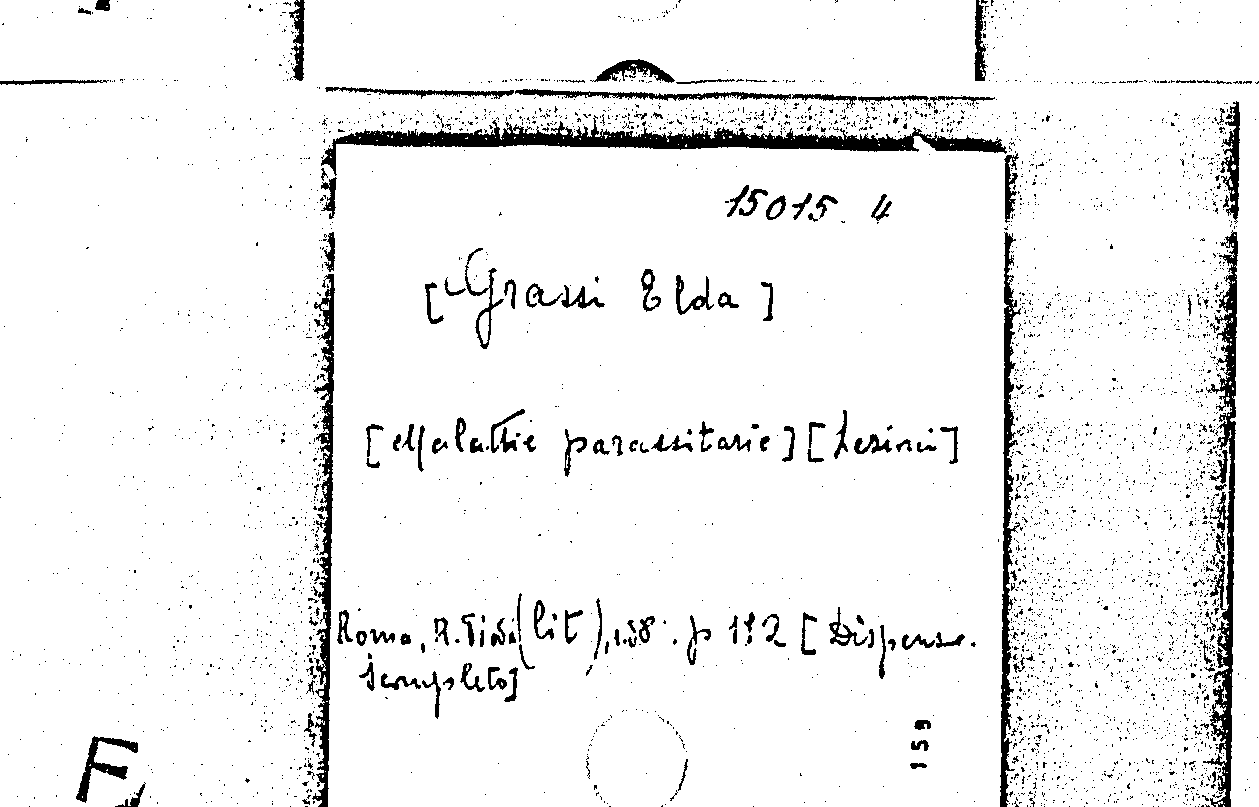 15015. 4
[Grassi Elda]
[Malattie parassitarie] [Lezioni]
Roma, R. (lit), p 192 [Dispense.
Icompleto]
159
F